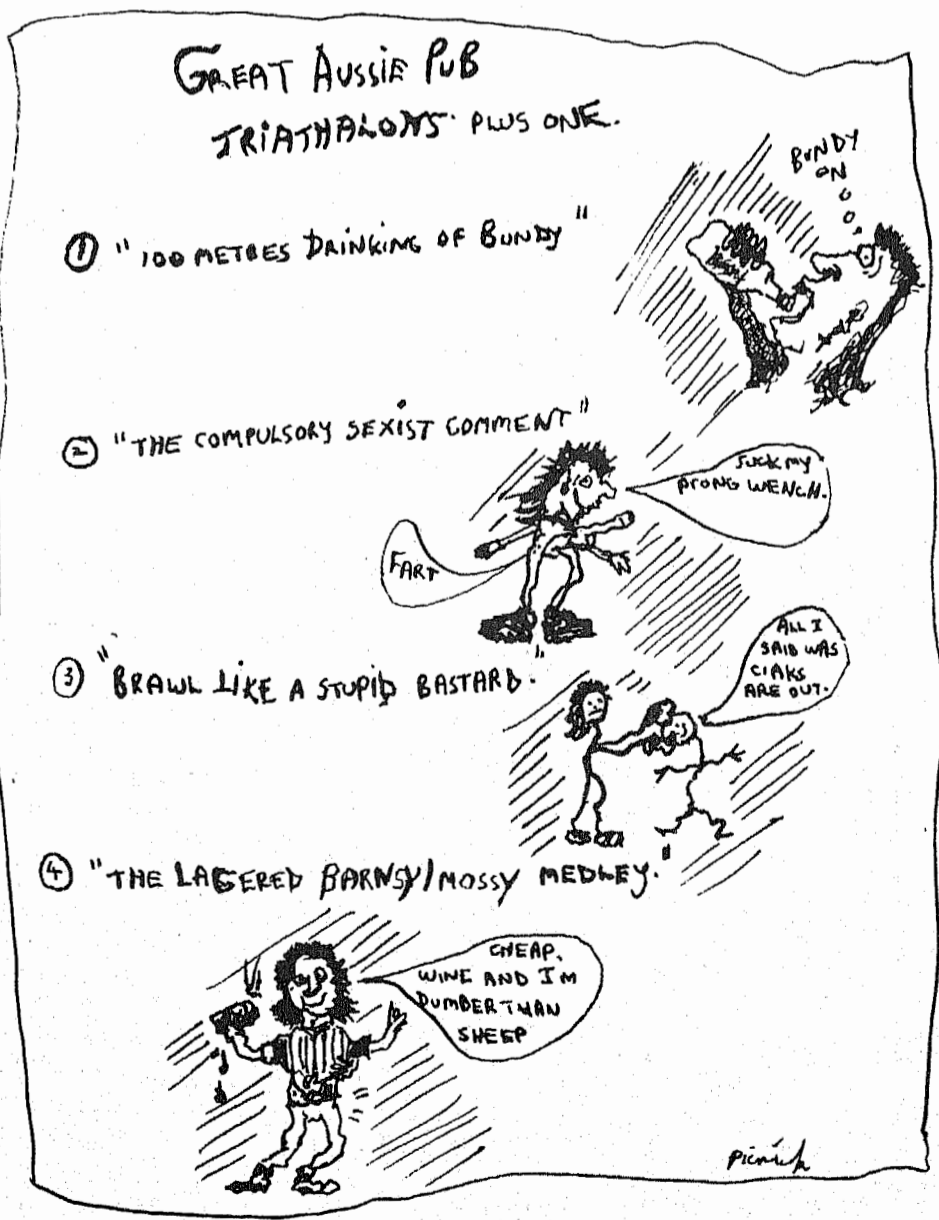 GREAT AUSSIE PUB
TRIATHALONS PLUS ONE.
BUNDY
ON
① "100 METRES DRINKING OF BUNDY"
② "THE COMPULSORY SEXIST COMMENT"
SUCK MY
PRONG WENCH.
FART
③ "BRAWL LIKE A STUPID BASTARD."
ALL I
SAID WAS
CIAKS
ARE OUT.
④ "THE LAGERED BARNSY/MOSSY MEDLEY."
CHEAP.
WINE AND I'M
DUMBER THAN
SHEEP